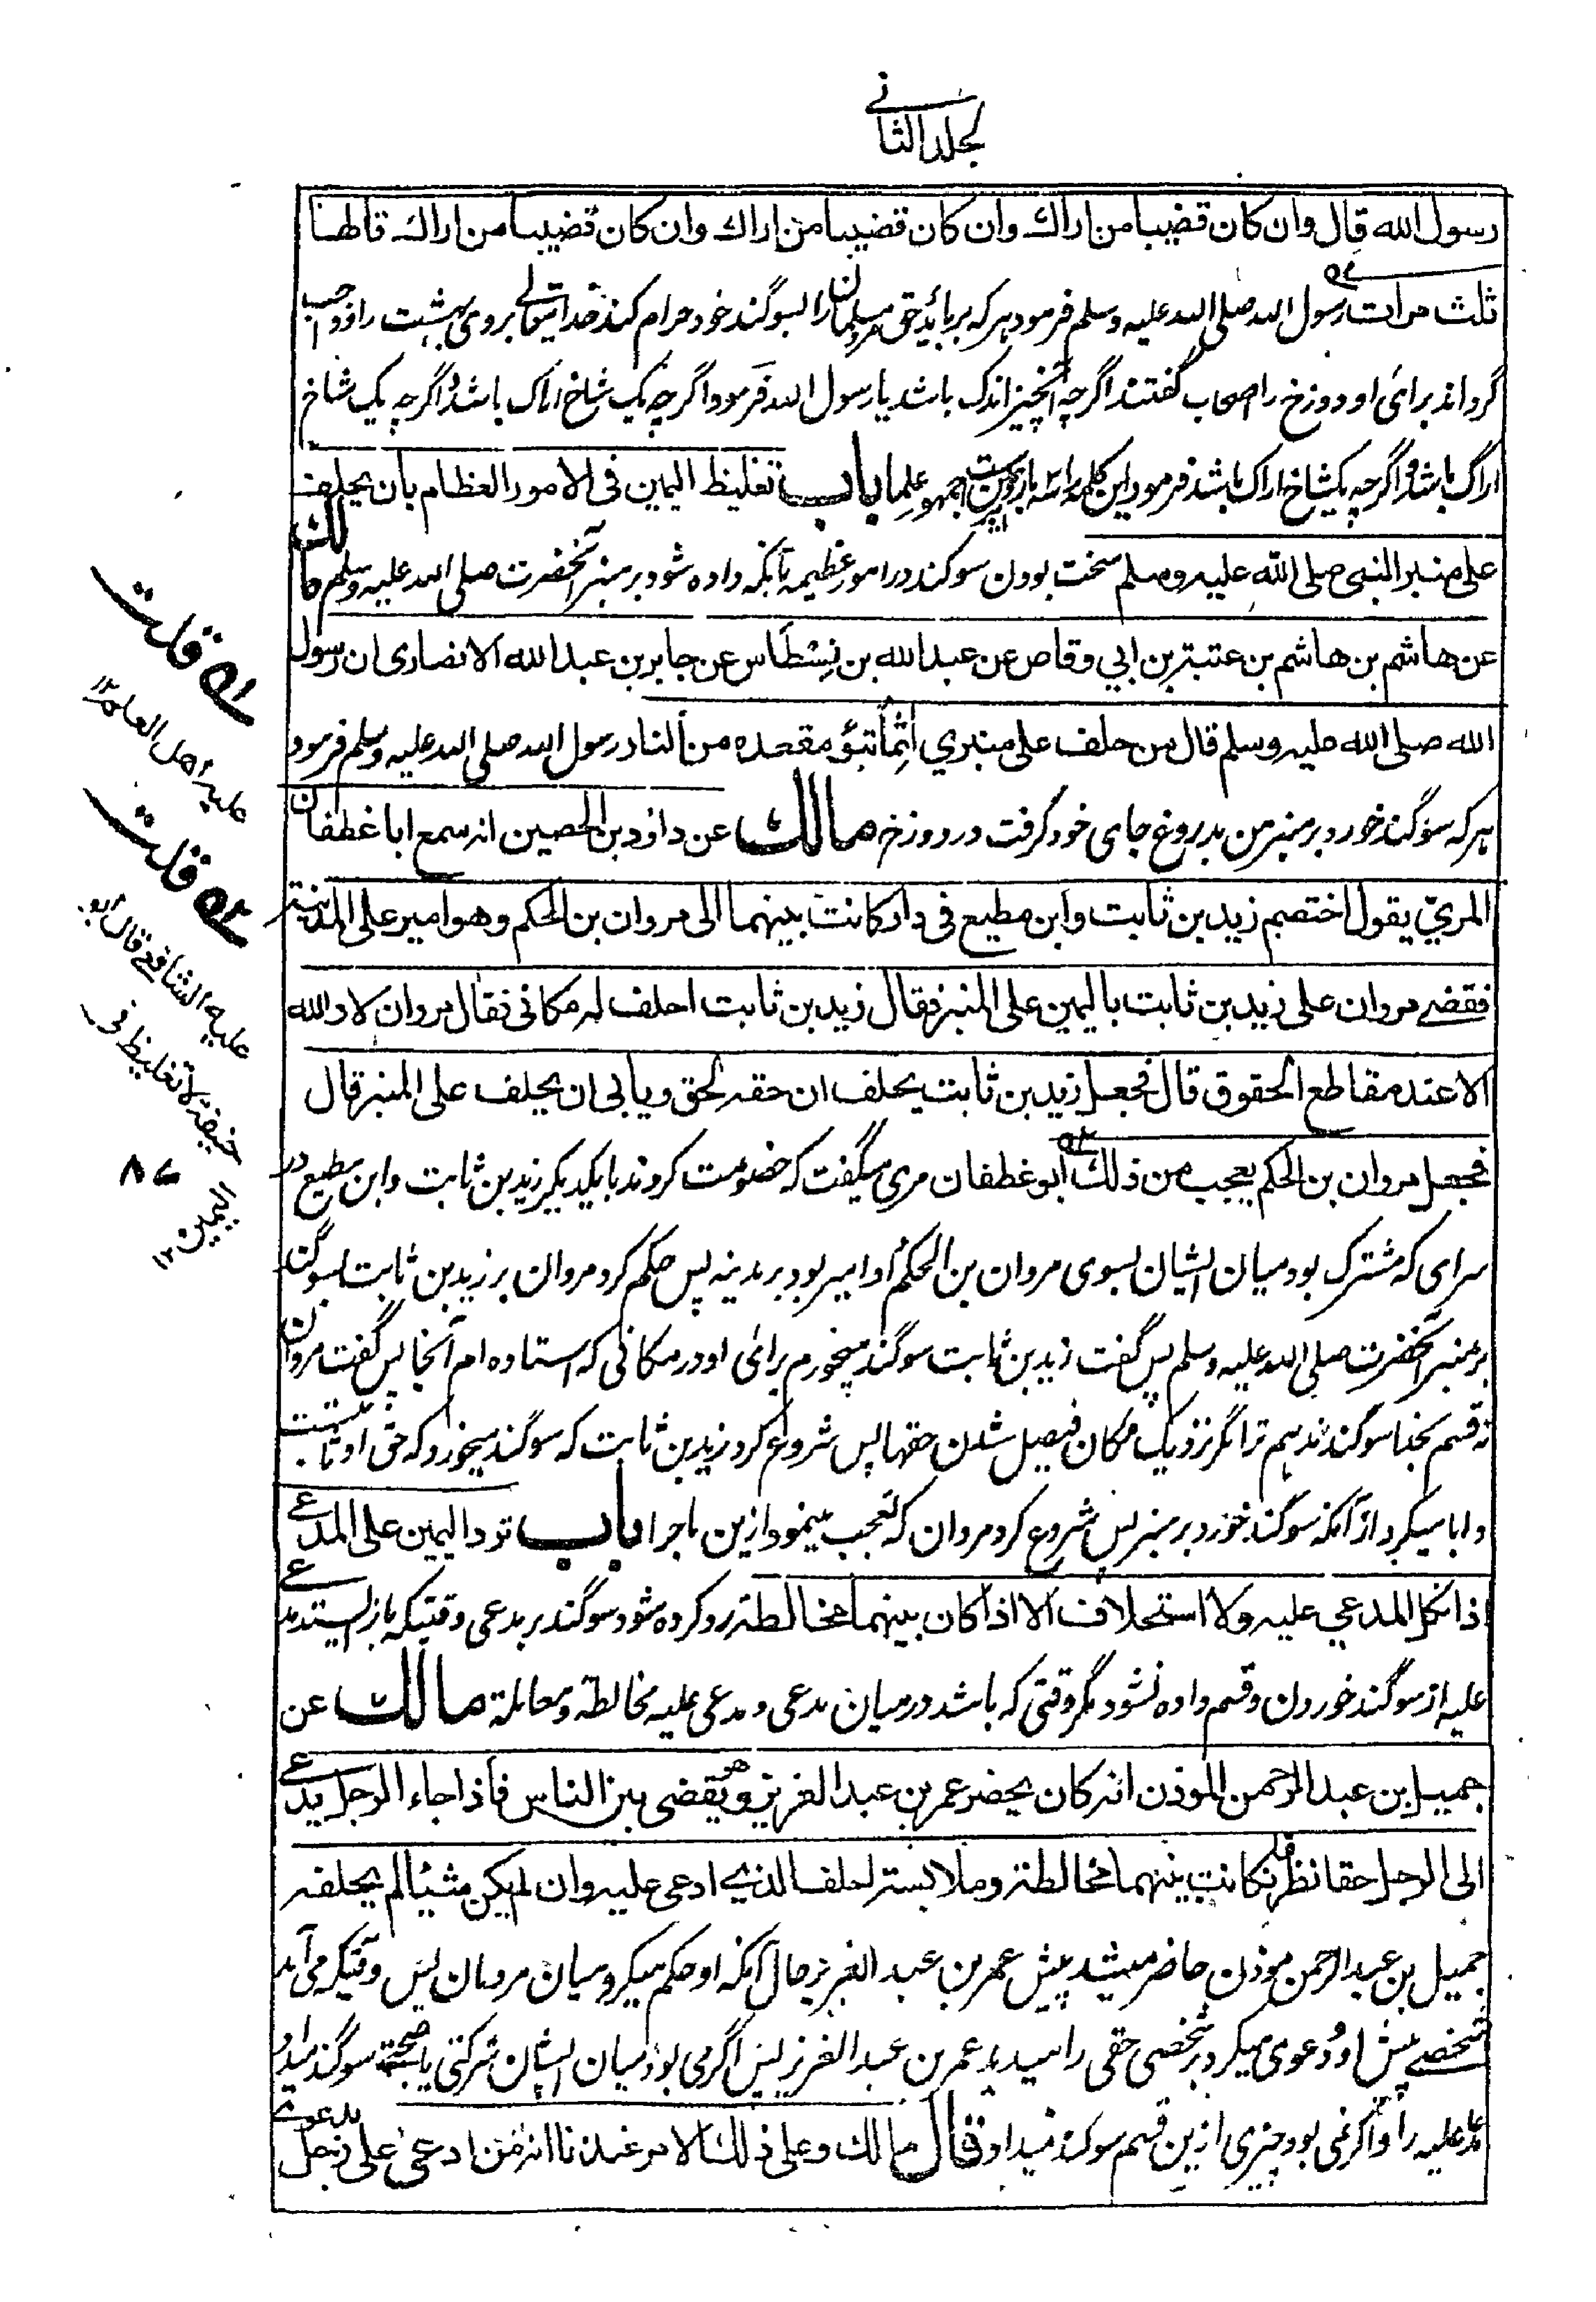 الجلد الثاني
رسول الله قال وان كان قضيبا من اراك وان كان قضيبا من اراك وان كان قضيبا من اراك قالها
ثلث مرات رسول الله صلى الله عليه وسلم فرمود هر که برباید حق مرد مسلمان را بسوگند خود حرام کند خدایتعالی بر وی بهشت را و واجب
گرداند برای او دوزخ را اصحاب گفتند اگرچه آنچیز اندک باشد یا رسول الله فرمود اگرچه یک شاخ اراک باشد و اگرچه یک شاخ
اراک باشد و اگرچه یکشاخ اراک باشد فرمود این کلمه را سه بار جمهور علما باب تغليظ اليمين فى الامور العظام بان يحلف
على منبر النبى صلى الله عليه وسلم سخت بودن سوگند در امور عظیمه بآنکه داده شود بر منبر آنحضرت صلی الله علیه وسلم مالك
عن هاشم بن هاشم بن عتبة بن ابي وقاص عن عبد الله بن نِسْطَاس عن جابر بن عبد الله الانصارى ان رسول
الله صلى الله عليه وسلم قال من حلف على منبري آثِمًا تبوّؤ مقعده من النار رسول الله صلی الله علیه وسلم فرمود
هر که سوگند خورد بر منبر من بدروغ جای خود گرفت در دوزخ مالك عن داؤد بن الحصين انه سمع ابا غطفان
المريّ يقول اختصم زيد بن ثابت وابن مطيع فى دار كانت بينهما الى مروان بن الحكم وهو امير على المدينة
فقضى مروان على زيد بن ثابت باليمين على المنبر فقال زيد بن ثابت احلف له مكانى فقال مروان لا والله
الا عند مقاطع الحقوق قال فجعل زيد بن ثابت يحلف ان حقه لحق ويابى ان يحلف على المنبر قال
فجعل مروان بن الحكم يعجب من ذلك ابو غطفان مری میگفت که خصومت کردند بایکدیگر زید بن ثابت وابن مطیع در
سرای که مشترک بود میان ایشان بسوی مروان بن الحکم و او امیر بود بر مدینه پس حکم کرد مروان بر زید بن ثابت بسوگند
بر منبر آنحضرت صلی الله علیه وسلم پس گفت زید بن ثابت سوگند میخورم برای او در مکانی که استاده ام آنجا پس گفت مروان
نه قسم بخدا سوگند ندهم ترا مگر نزدیک مکان فیصل شدن حقها پس شروع کرد زید بن ثابت که سوگند میخورد که حق او ثابت است
و ابا میکرد از آنکه سوگند خورد بر منبر پس شروع کرد مروان که تعجب مینمود ازین ماجرا باب تود اليمين على المدعى
اذا نكل المدعي عليه ولا استحلاف الا اذا كان بينهما مخالطة رد کرده شود سوگند بر مدعی وقتیکه باز ایستد مدعی
علیه از سوگند خوردن و قسم داده نشود مگر وقتی که باشد درمیان مدعی و مدعی علیه مخالطة و معاملة مالك عن
جميل بن عبد الرحمن المؤذن انه كان يحضر عمر بن عبد العزيز وهو يقضى بين الناس فاذا جاء الرجل يدعى
الى الرجل حقا نظر فان كانت بينهما مخالطة وملابسة احلف الذي ادعى عليه وان لم يكن شيئا لم يحلفه
جمیل بن عبد الرحمن مؤذن حاضر میشد پیش عمر بن عبد العزیز حال آنکه او حکم میکرد میان مردمان پس وقتیکه می آمد
شخصی پیش او و دعوی میکرد بر شخصی حقی را میدید عمر بن عبد العزیز پس اگر می بود میان ایشان شرکتی یا صحبتی سوگند میداد
مدعا علیه را و اگر نمی بود چیزی ازین قسم سوگند نمیداد قال مالك وعلى ذلك الامر عندنا انه من ادعى على رجل بدعوى
۵۱ قلت
عليه اهل العلم ۱۲
۵۲ قلت
عليه الشافعى قال ابو
حنيفة لا تغليظ فى
اليمين ۱۲